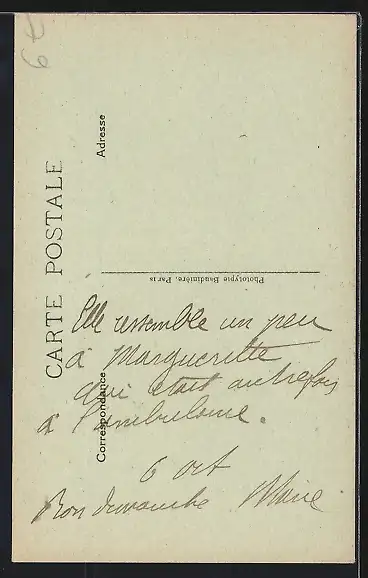 CARTE POSTALE
Correspondance
Adresse
Phototypie Baudinière, Paris
Elle ressemble un peu
à Marguerette
qui était autrefois
à l'ambulance.
6 oct
Bon dimanche Marie